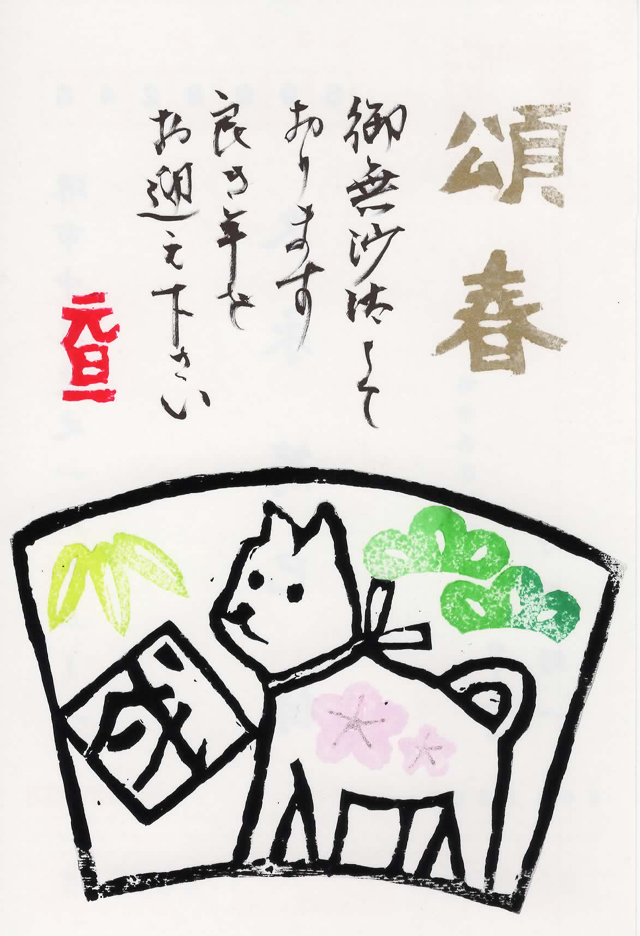 頌春
御無沙汰して
おります
良き年を
お迎え下さい
元旦
戌